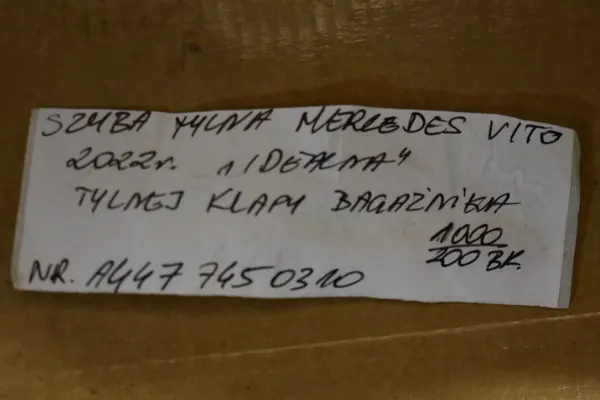 SZYBA TYLNA MERCEDES VITO
2022r. "IDEALNA"
TYLNEJ KLAPY BAGAŻNIKA
1000
200 BK.
NR. A447 7450310